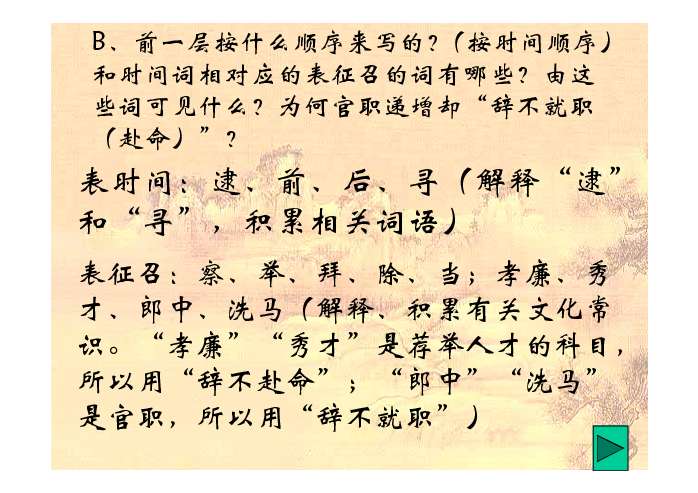 B、前一层按什么顺序来写的？（按时间顺序）
和时间词相对应的表征召的词有哪些？由这
些词可见什么？为何官职递增却“辞不就职
（赴命）”？
表时间：逮、前、后、寻（解释“逮”
和“寻”，积累相关词语）
表征召：察、举、拜、除、当；孝廉、秀
才、郎中、洗马（解释、积累有关文化常
识。“孝廉”“秀才”是荐举人才的科目，
所以用“辞不赴命”；“郎中”“洗马”
是官职，所以用“辞不就职”）